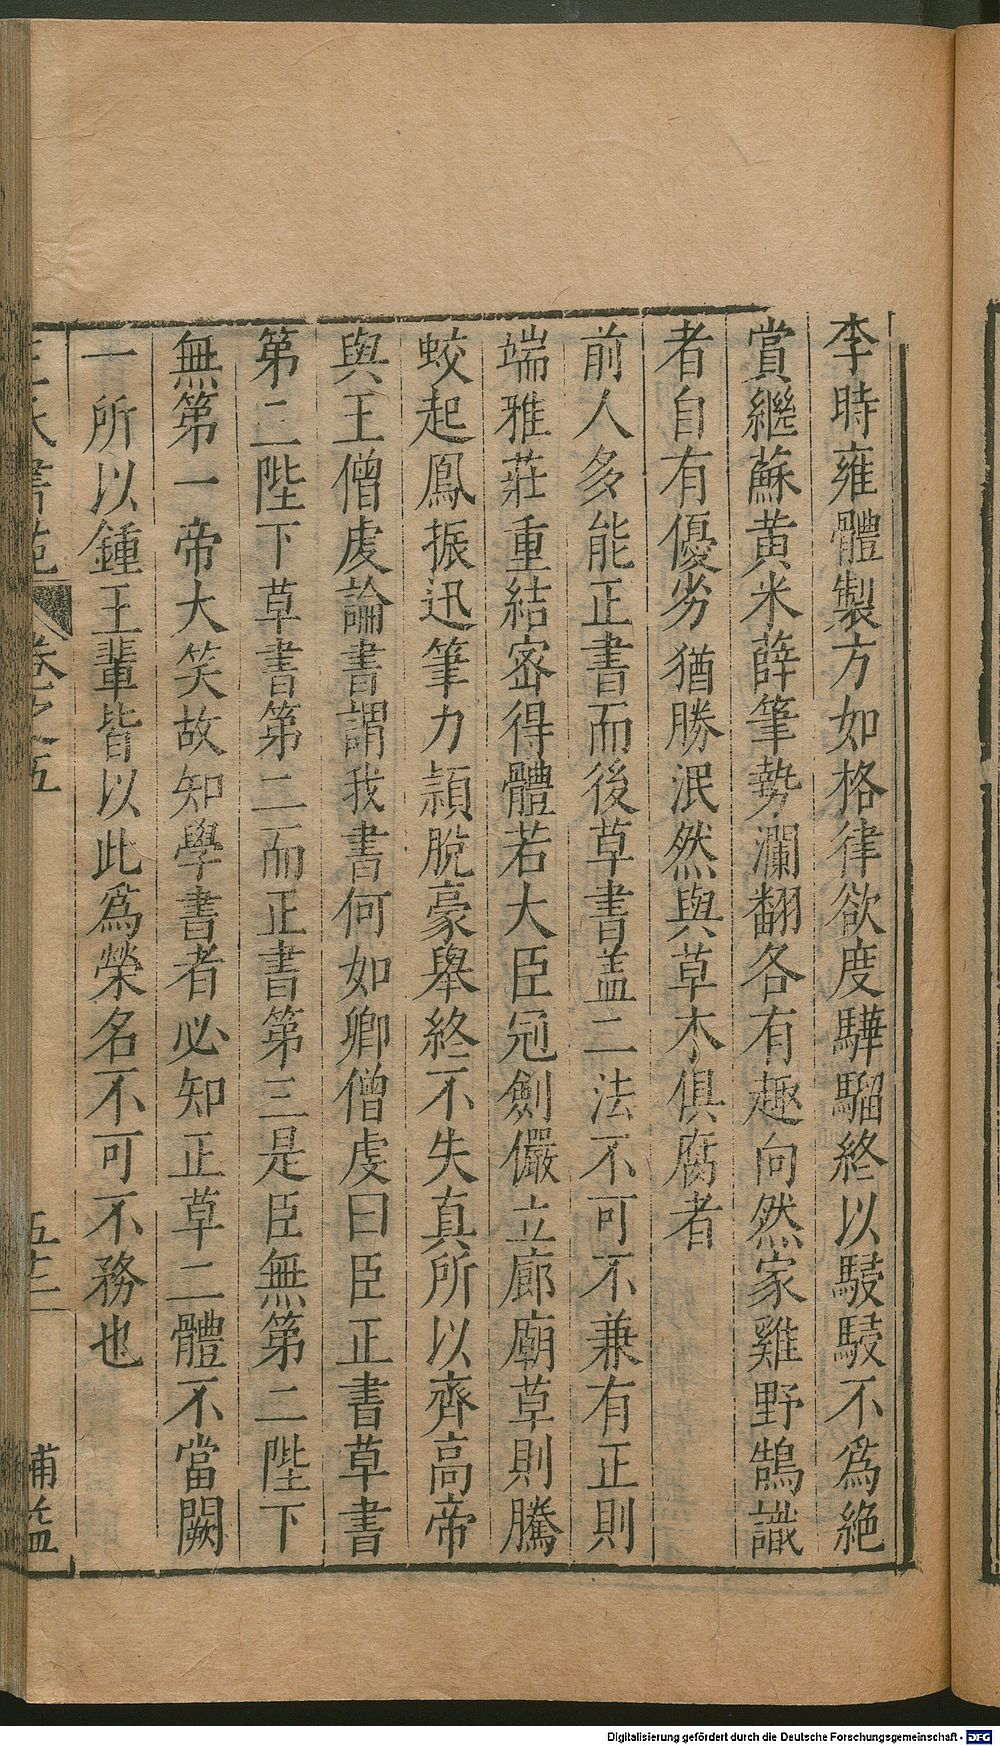 李時雍體製方如格律欲度驊騮終以駸駸不爲絶
賞繼蘇黄米薛筆勢瀾翻各有趣向然家雞野鵠識
者自有優劣猶勝泯然與草木俱腐者
前人多能正書而後草書盖二法不可不兼有正則
端雅莊重結宻得體若大臣冠劍儼立廊廟草則騰
蛟起鳳振迅筆力頴脫豪舉終不失真所以齊高帝
與王僧虔論書謂我書何如卿僧虔曰臣正書草書
第二陛下草書第二而正書第三是臣無第二陛下
無第一帝大笑故知學書者必知正草二體不當闕
一所以鍾王輩皆以此爲榮名不可不務也
書苑 卷之五 五十二
Digitalisierung gefördert durch die Deutsche Forschungsgemeinschaft - DFG